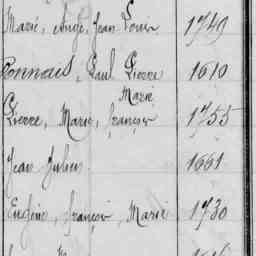 Marie, Ange, Jean Louis 1749
Connois, Paul Pierre 1610
Marie
Pierre, Marie, François 1755
Jean Julien 1661
Eugène, François, Marie 1730